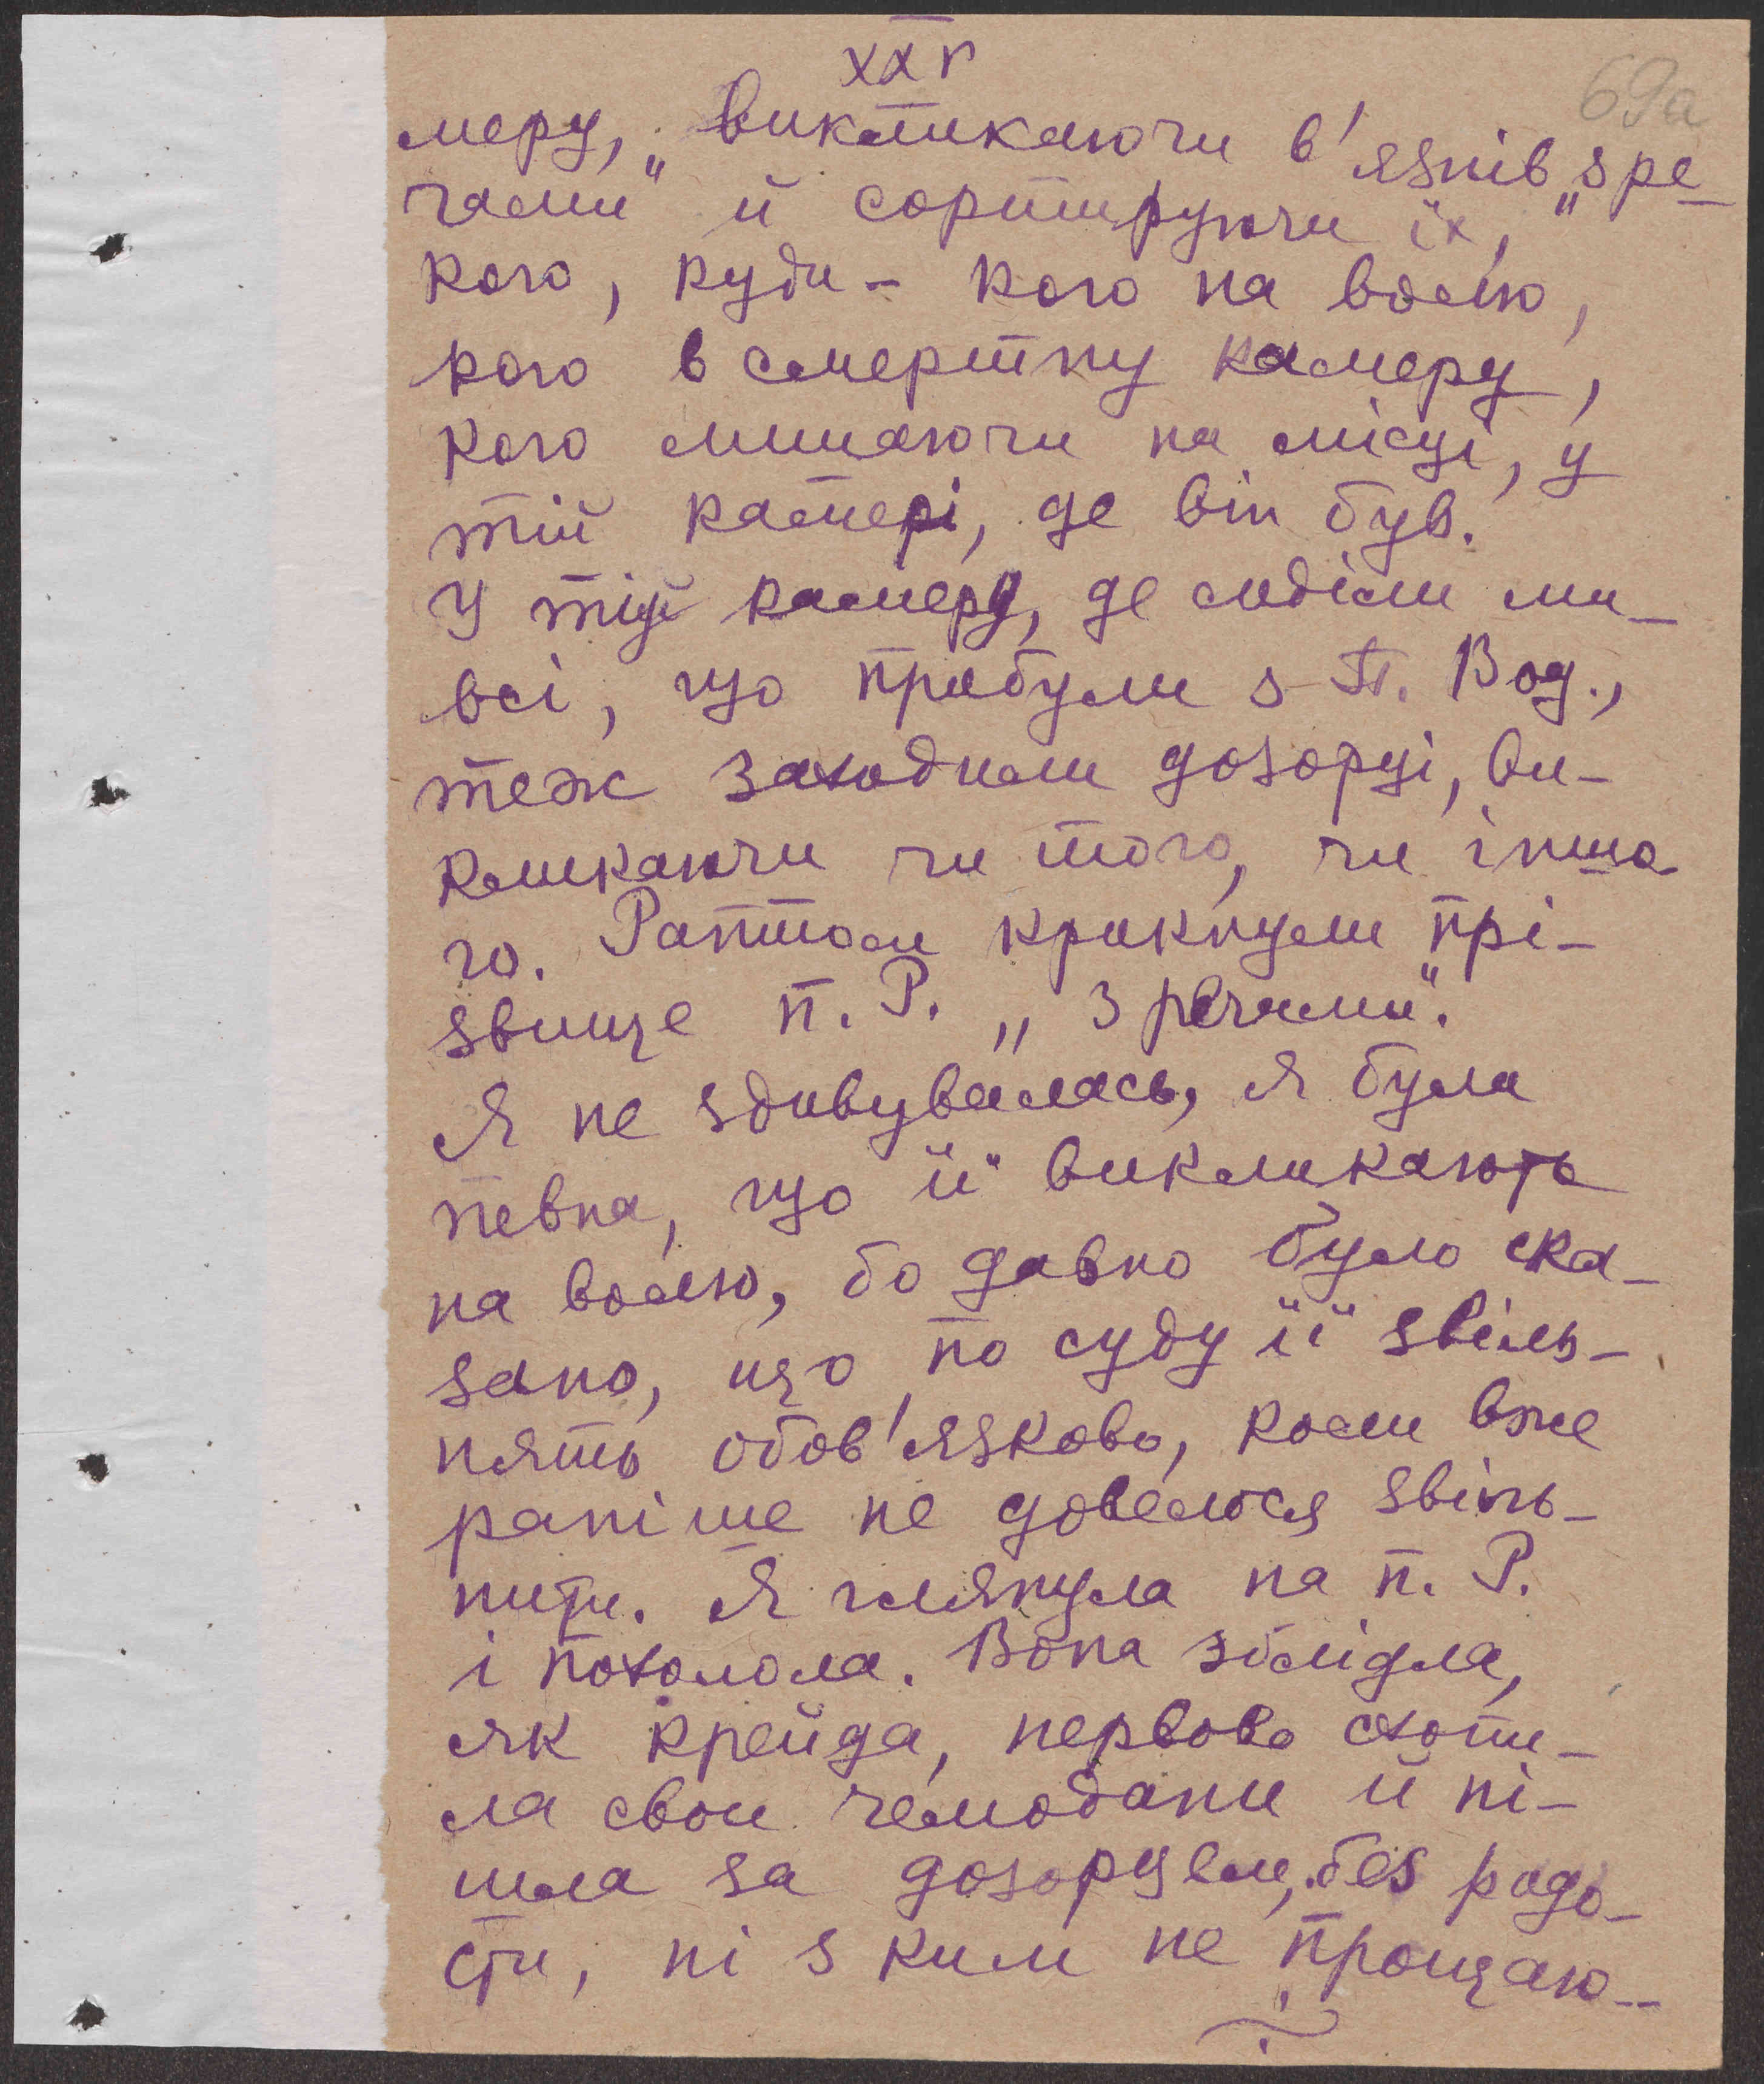 XXV
69а
меру, „викликаючи в'язнів „з ре-
чами" й сортируючи їх,
кого, куди - кого на волю,
кого в смертну камеру,
кого лишаючи на місці, у
тій камері, де він був.
У тій камеру, де сиділи ми-
всі, що прибули з П. Вод.,
теж заходили дозорці, ви-
кликаючи чи того, чи іншо-
го. Раптом крикнули прі-
звище п. Р. „З речами".
Я не здивувалась, я була
певна, що її викликають
на волю, бо давно було ска-
зано, що по суду її звіль-
нять обов'язково, коли вже
раніше не довелося звіль-
нити. Я глянула на п. Р.
і похолола. Вона зблідла,
як крейда, нервово схопи-
ла свои чемодани й пі-
шла за дозорцем, без радо-
сти, ні з ким не прощаю-